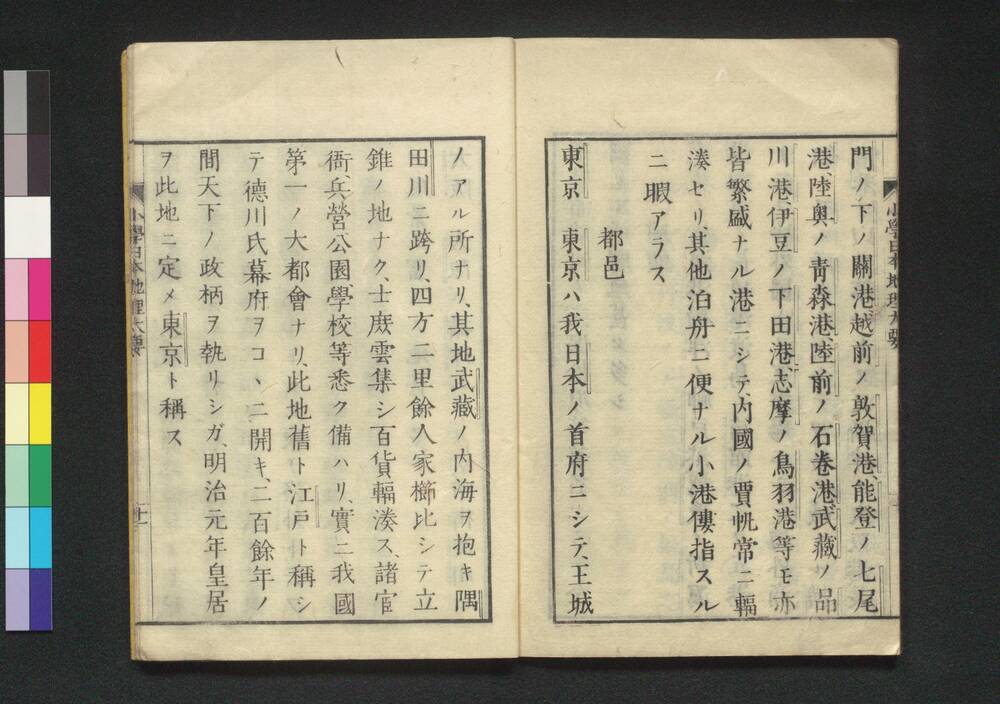 門ノ下ノ關港、越前ノ敦賀港、能登ノ七尾
港、陸奧ノ靑森港、陸前ノ石卷港、武藏ノ品
川港、伊豆ノ下田港、志摩ノ鳥羽港等モ亦
皆繁盛ナル港ニシテ、内國ノ賈帆常ニ輻
湊セリ、其他泊舟ニ便ナル小港僂指スル
ニ暇アラス
都邑
東京 東京ハ我日本ノ首府ニシテ、王城
ノアル所ナリ、其地武藏ノ内海ヲ抱キ隅
田川ニ跨リ、四方二里餘人家櫛比シテ立
錐ノ地ナク、士庶雲集シ百貨輻湊ス、諸官
衙、兵營公園、學校等悉ク備ハリ、實ニ我國
第一ノ大都會ナリ、此地舊ト江戸ト稱シ
テ德川氏幕府ヲコヽニ開キ、二百餘年ノ
間天下ノ政柄ヲ執リシガ、明治元年皇居
ヲ此地ニ定メ東京ト稱ス
小學日本地理大要
小學日本地理大要
十一